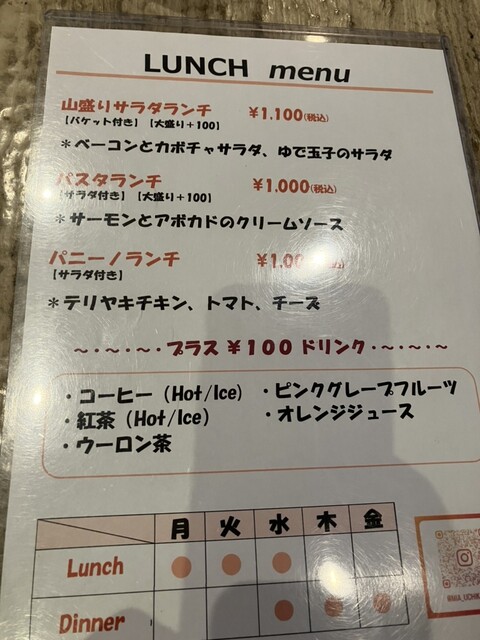 LUNCH menu
山盛りサラダランチ ¥1,100(税込)
【バケット付き】【大盛り+100】
*ベーコンとカボチャサラダ、ゆで玉子のサラダ
パスタランチ ¥1,000(税込)
【サラダ付き】【大盛り+100】
*サーモンとアボカドのクリームソース
パニーノランチ
【サラダ付き】
*テリヤキチキン、トマト、チーズ
~・~・~・プラス ¥100 ドリンク・~・~・~
・コーヒー(Hot/Ice) ・ピンクグレープフルーツ
・紅茶(Hot/Ice) ・オレンジジュース
・ウーロン茶
月 火 水 木 金
Lunch
Dinner